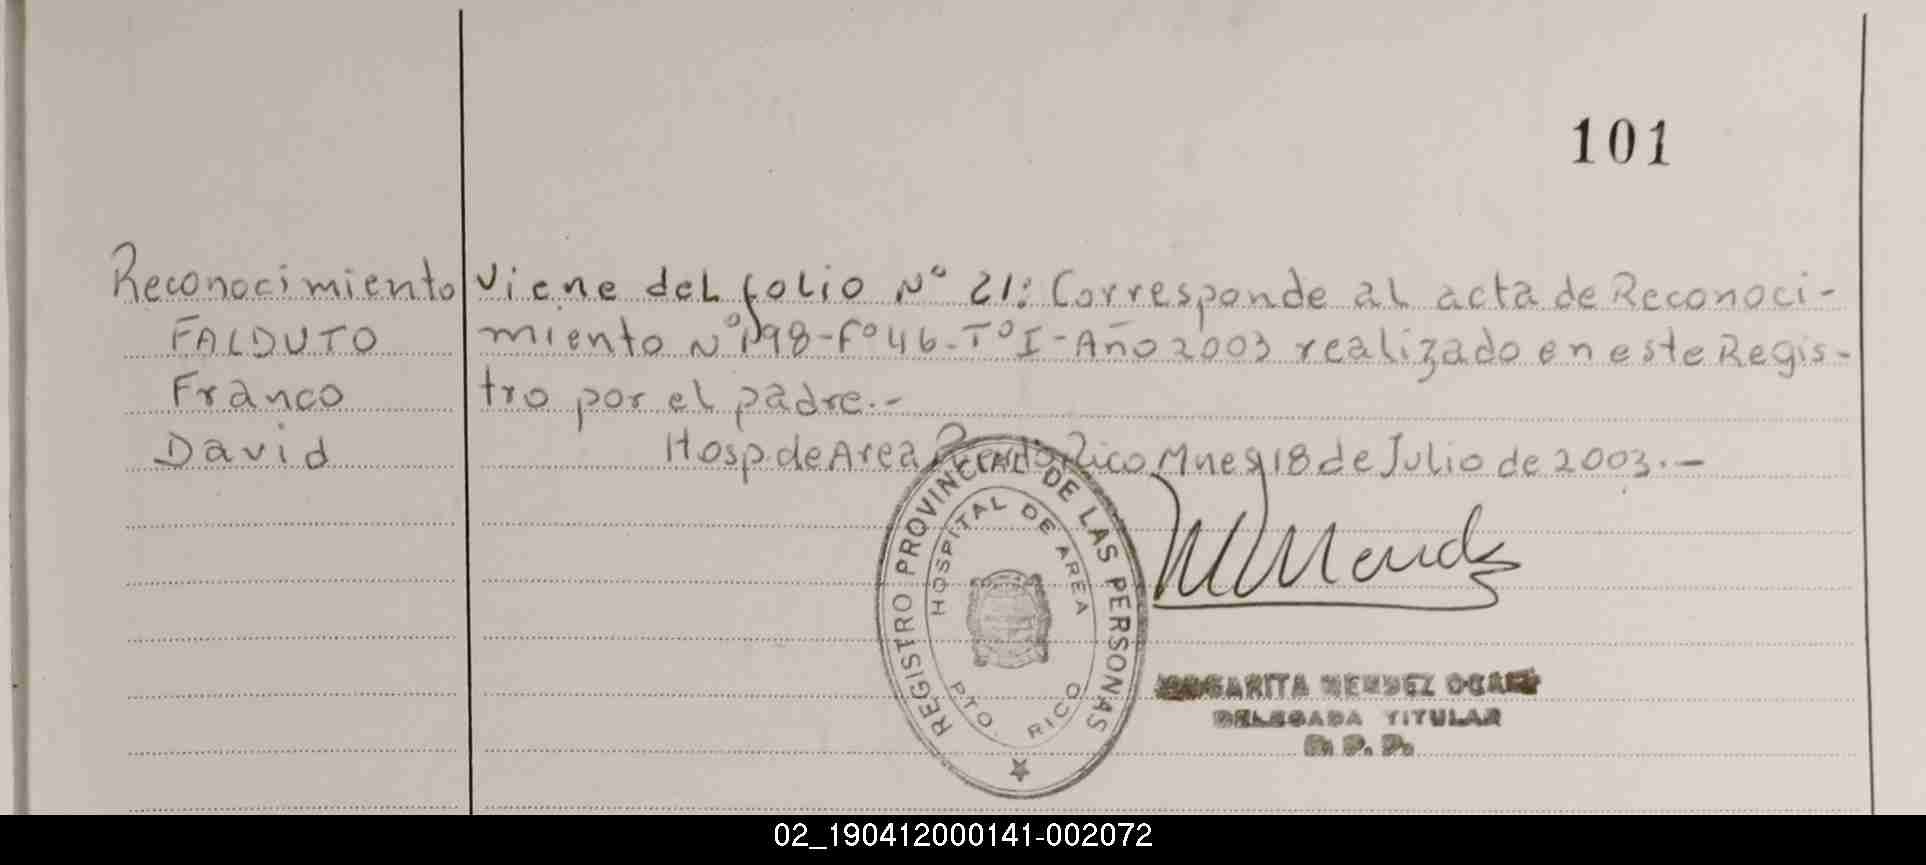 101
Reconocimiento viene del folio N° 21: Corresponde al acta de Reconoci-
FALDUTO miento N° 198-F° 46-T° I-Año 2003 realizado en este Regis-
Franco tro por el padre.-
David Hosp de Area Puerto Rico Mnes 18 de Julio de 2003.-
REGISTRO PROVINCIAL DE LAS PERSONAS
HOSPITAL DE AREA
PTO. RICO
MARGARITA MENDEZ
DELEGADA TITULAR
02_190412000141-002072